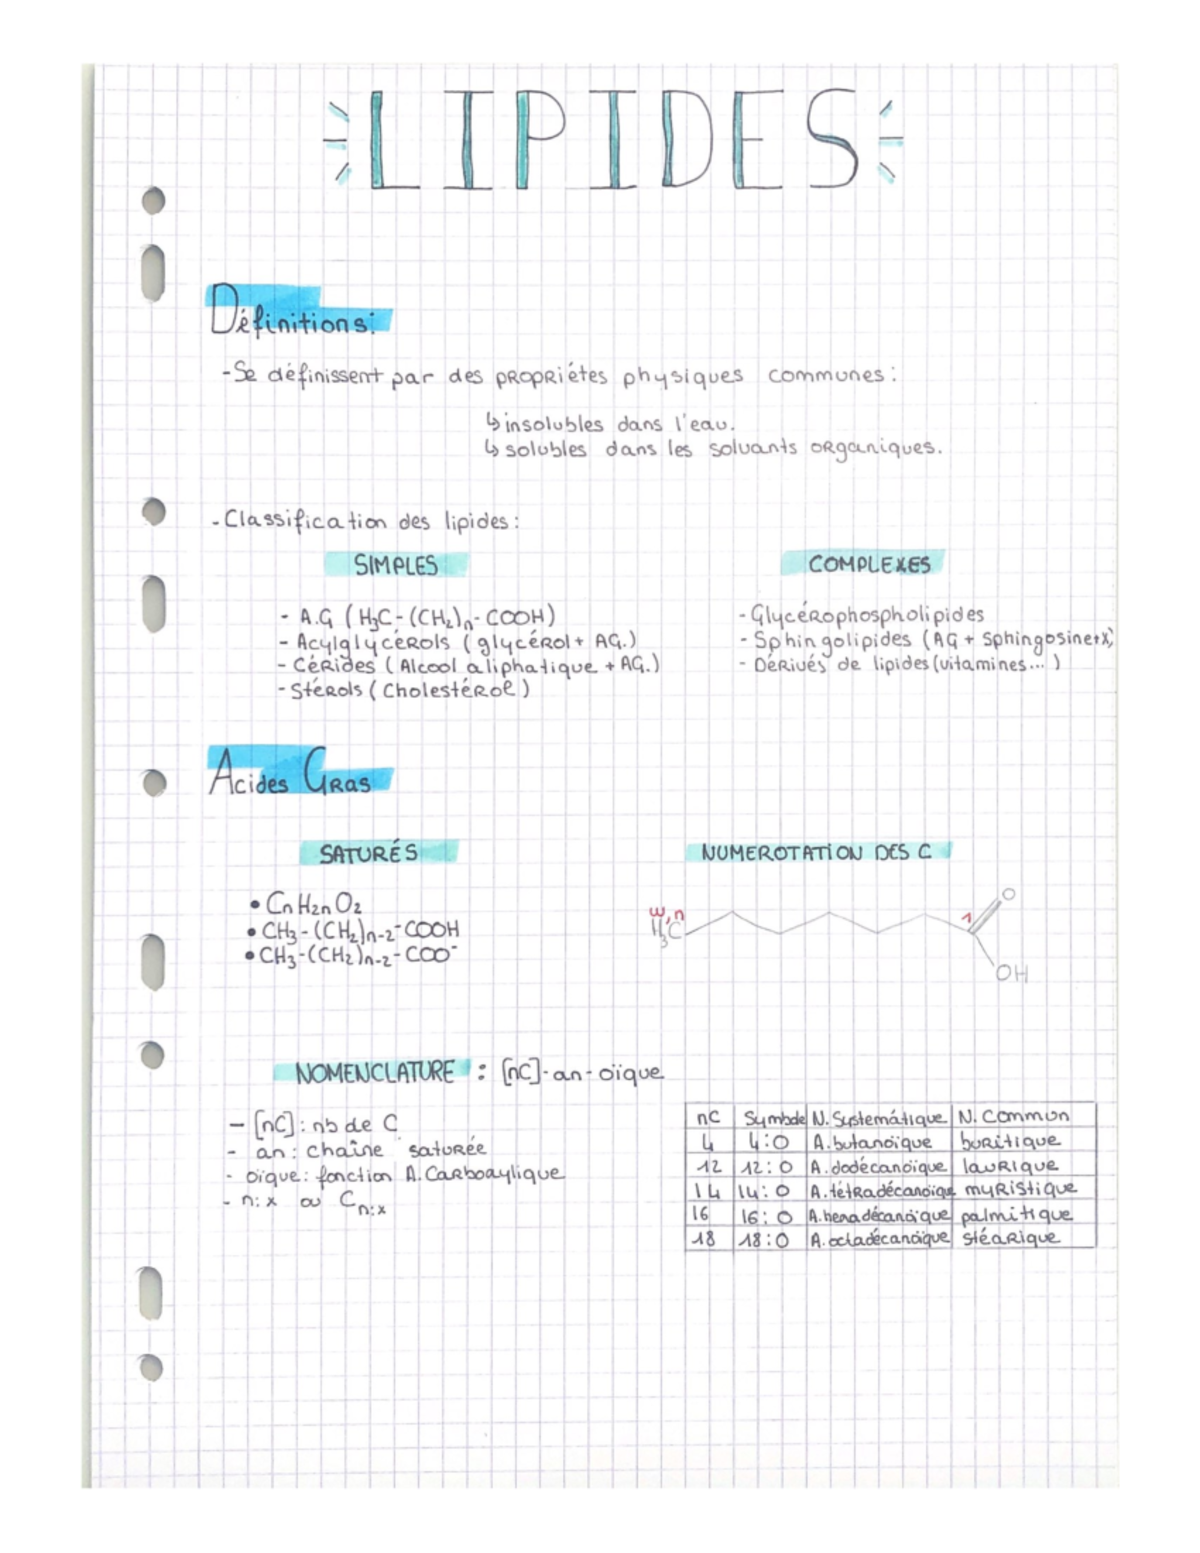 LIPIDES
Définitions:
-Se définissent par des propriétes physiques communes:
↳ insolubles dans l'eau.
↳ solubles dans les solvants organiques.
- Classification des lipides:
SIMPLES
- A.G (H₃C-(CH₂)n-COOH)
- Acylglycérols (glycérol + AG.)
- Cérides (Alcool aliphatique + AG.)
- Stérols (Cholestérol)
COMPLEXES
- Glycérophospholipides
- Sphingolipides (AG + Sphingosine+X)
- Dérivés de lipides (vitamines... )
Acides Gras
SATURÉS
• CnH2nO2
• CH3-(CH2)n-2-COOH
• CH3-(CH2)n-2-COO⁻
NUMEROTATION DES C
w,n
H₃C
1
O
OH
NOMENCLATURE : [nC]-an-oïque
- [nC]: nb de C
- an: chaîne saturée
- oïque: fonction A. Carboxylique
- n:x ou Cn:x
nC Symbole N. Systématique N. Commun
4 4:0 A. butanoïque buritique
12 12:0 A. dodécanoïque laurique
14 14:0 A. tétradécanoïque myristique
16 16:0 A. hexadécanoïque palmitique
18 18:0 A. octadécanoïque stéarique